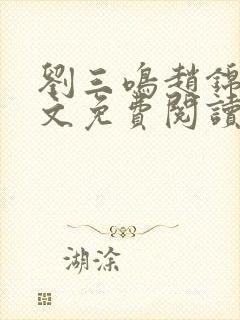 劉三鳴趙錦
文免費閱讀
湖涂